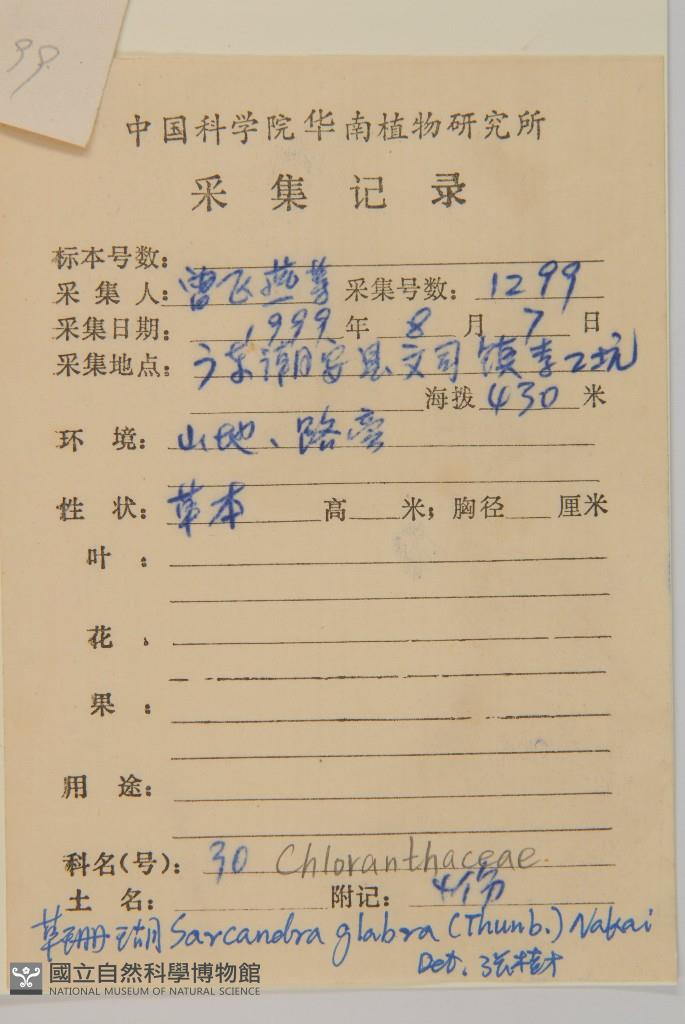 99
中国科学院华南植物研究所
采集记录
标本号数：
采集人：曾飞燕等 采集号数：1299
采集日期：1999年8月7日
采集地点：广东潮安县文司镇李工坑
海拨430米
环境：山地、路旁
性状：草本 高 米；胸径 厘米
叶：
花：
果：
用途：
科名(号)：30 Chloranthaceae
土名： 附记：4份
草珊瑚 Sarcandra glabra (Thunb.) Nakai
Det. 张桂才
國立自然科學博物館
NATIONAL MUSEUM OF NATURAL SCIENCE